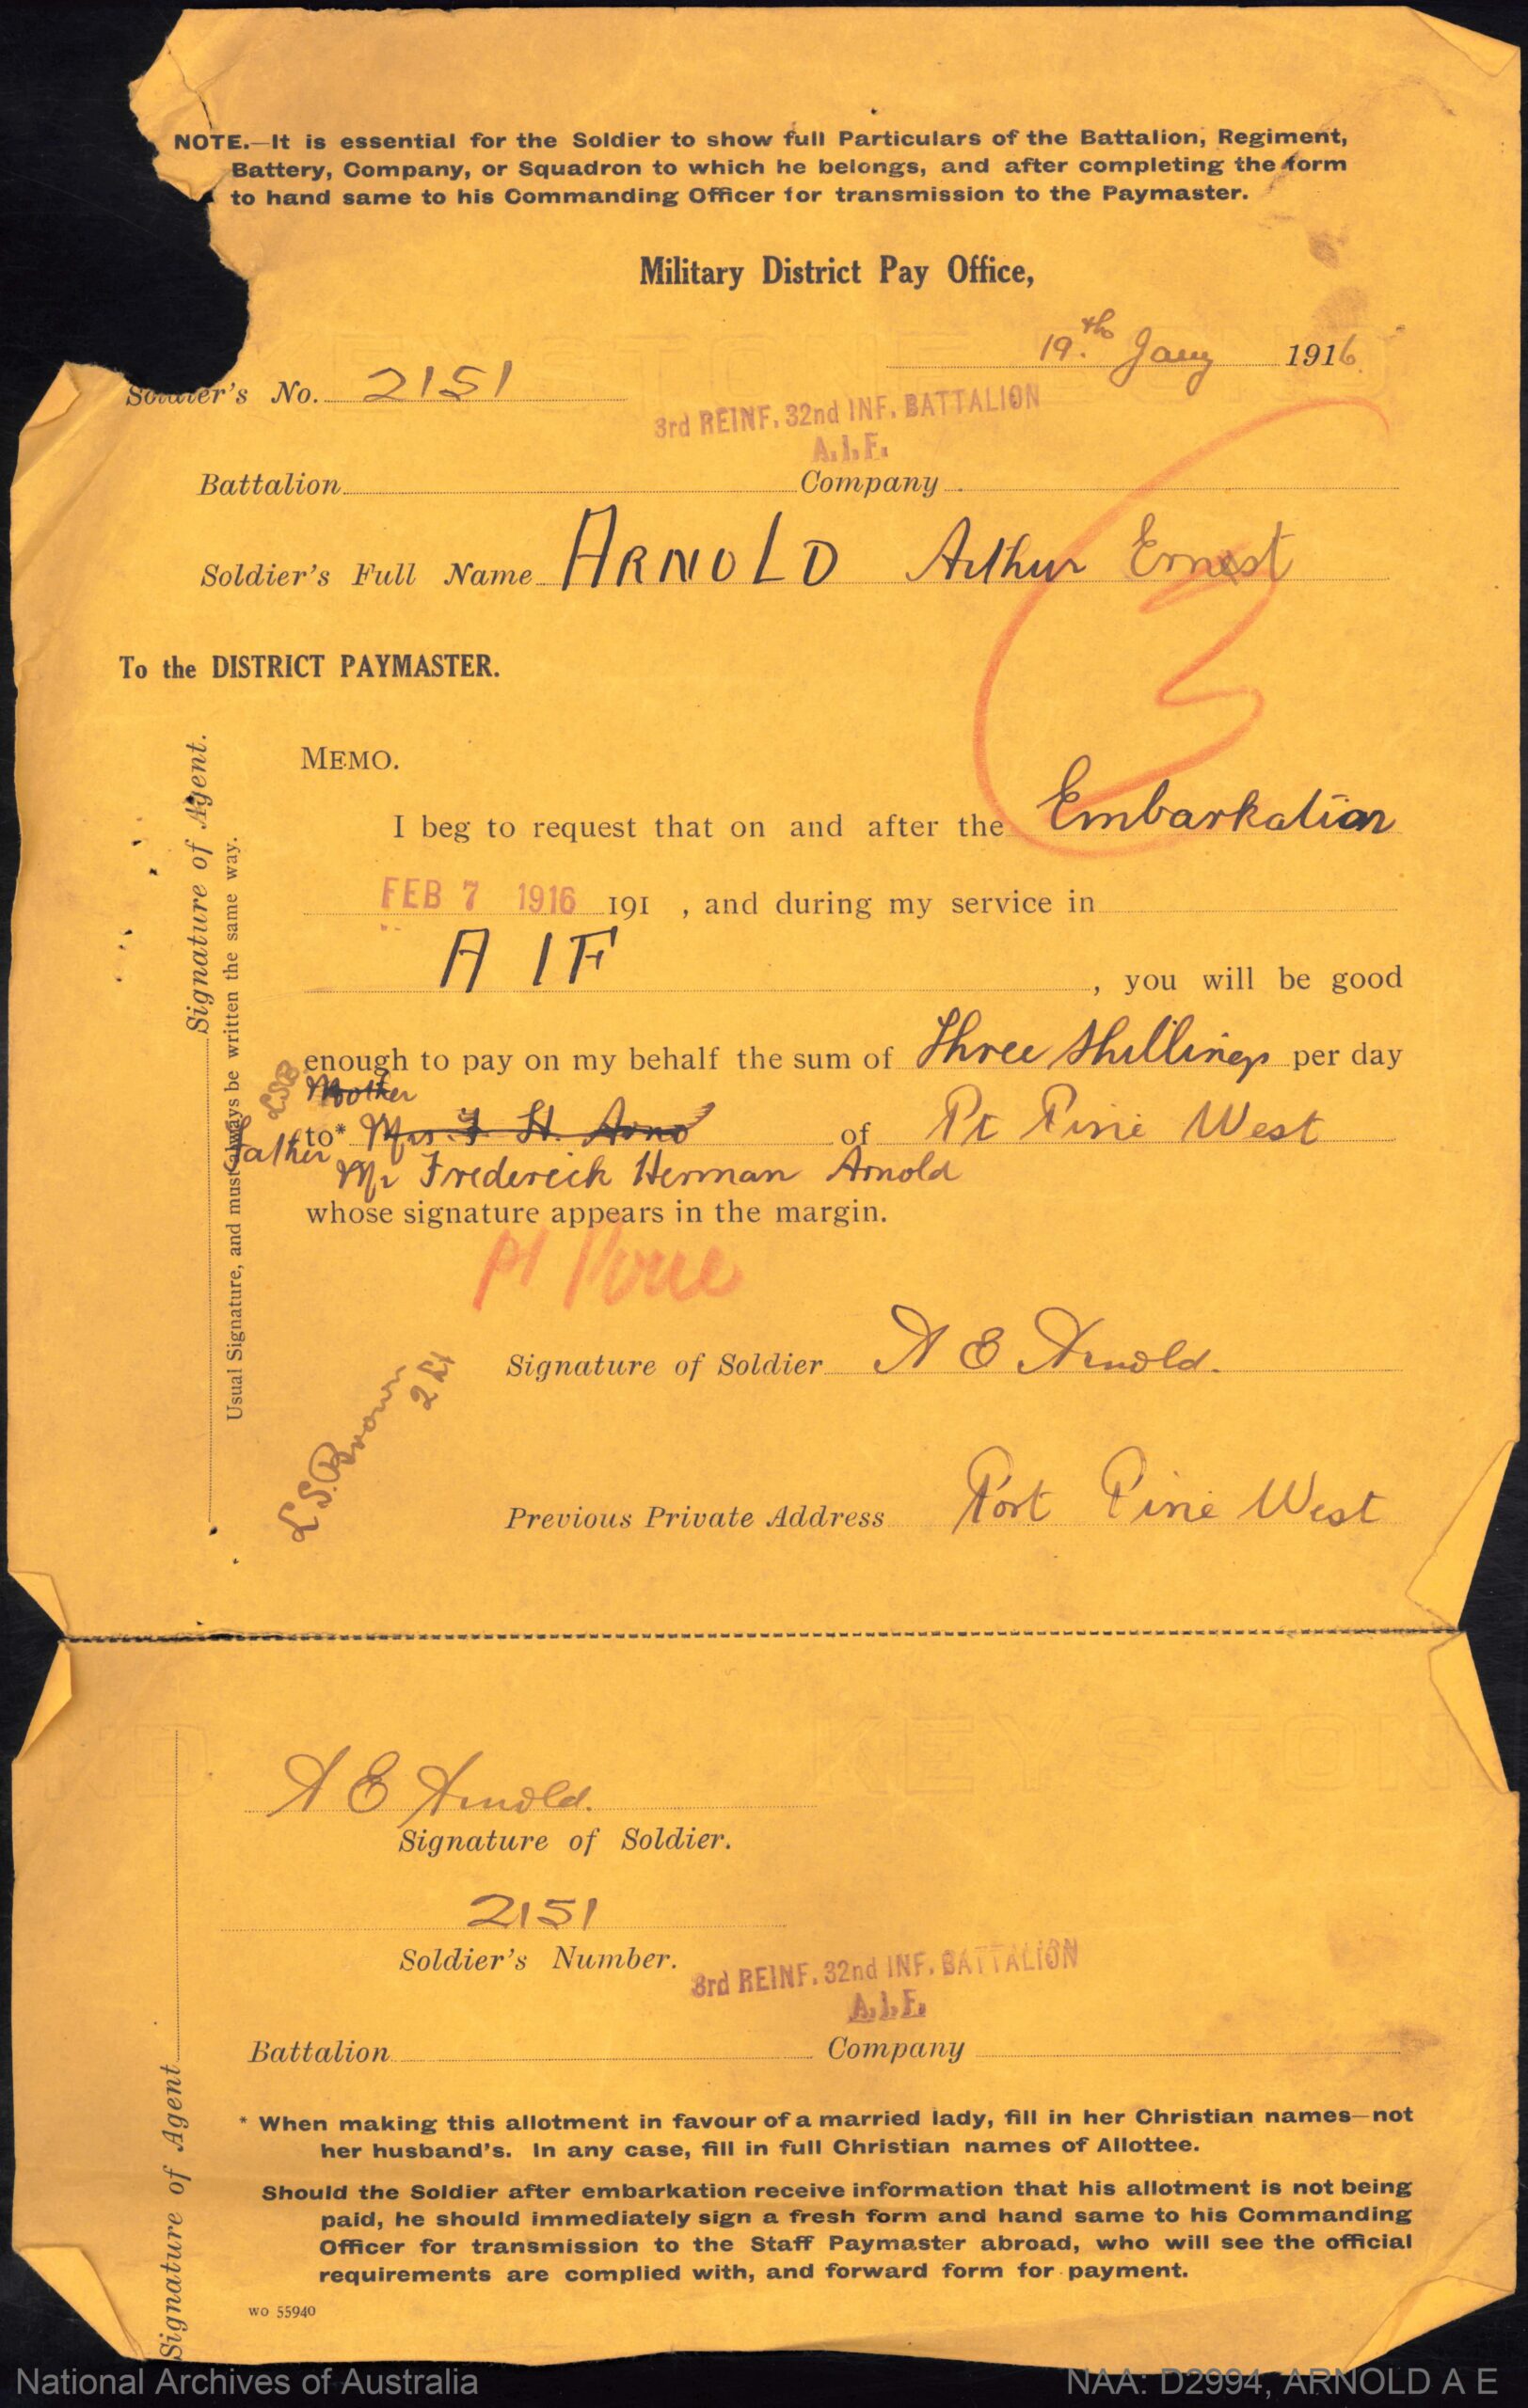 NOTE.—It is essential for the Soldier to show full Particulars of the Battalion, Regiment,
Battery, Company, or Squadron to which he belongs, and after completing the form
to hand same to his Commanding Officer for transmission to the Paymaster.
Military District Pay Office,
19.th Jany 1916
Soldier's No. 2151
3rd REINF. 32nd INF. BATTALION
A.I.F.
Battalion Company
Soldier's Full Name ARNOLD Arthur Ernest
3
To the DISTRICT PAYMASTER.
MEMO.
I beg to request that on and after the Embarkation
FEB 7 1916 191 , and during my service in
A I F , you will be good
enough to pay on my behalf the sum of Three Shillings per day
Mother
LSB
to* Mrs. F. H. Arno of Pt Pirie West
Father
Mr Frederick Herman Arnold
whose signature appears in the margin.
Pt Pirie
Signature of Soldier A E Arnold.
L.S. Brown
2 Lt
Previous Private Address Port Pirie West
Signature of Agent.
Usual Signature, and must always be written the same way.
KEYSTON
A E Arnold.
Signature of Soldier.
2151
Soldier's Number.
3rd REINF. 32nd INF. BATTALION
A.I.F.
Battalion Company
Signature of Agent
* When making this allotment in favour of a married lady, fill in her Christian names—not
her husband's. In any case, fill in full Christian names of Allottee.
Should the Soldier after embarkation receive information that his allotment is not being
paid, he should immediately sign a fresh form and hand same to his Commanding
Officer for transmission to the Staff Paymaster abroad, who will see the official
requirements are complied with, and forward form for payment.
WO 55940
National Archives of Australia
NAA: D2994, ARNOLD A E